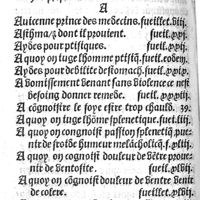 A
Auicenne prince des medecins. fueillet. viij.
Asthma/& dont il prouient. fueil. xxj.
Aydes pour ptisiques. fueil. xxj.
A quoy on iuge lhomme ptisiq̃. fueil. eodem.
Aydes pour debilite de stomach. fueil. xxix.
A vomissement venant sans violence & nest
besoing donner remede. fueil. xxxiij.
A cõgnoistre le foye estre trop chauld. 39.
A quoy on iuge lhõme splenetique. fuel. liij.
A quoy on congnoist passion splenetiq̃ ue-
nir de froide humeur melãcholicq̃. f. xliij
A quoy on cõgnoist douleur de vẽtre proue-
nir de ventosite. fueillet.
A quoy on cõgnoist douleur de ventre venir
de colere. fueillet.